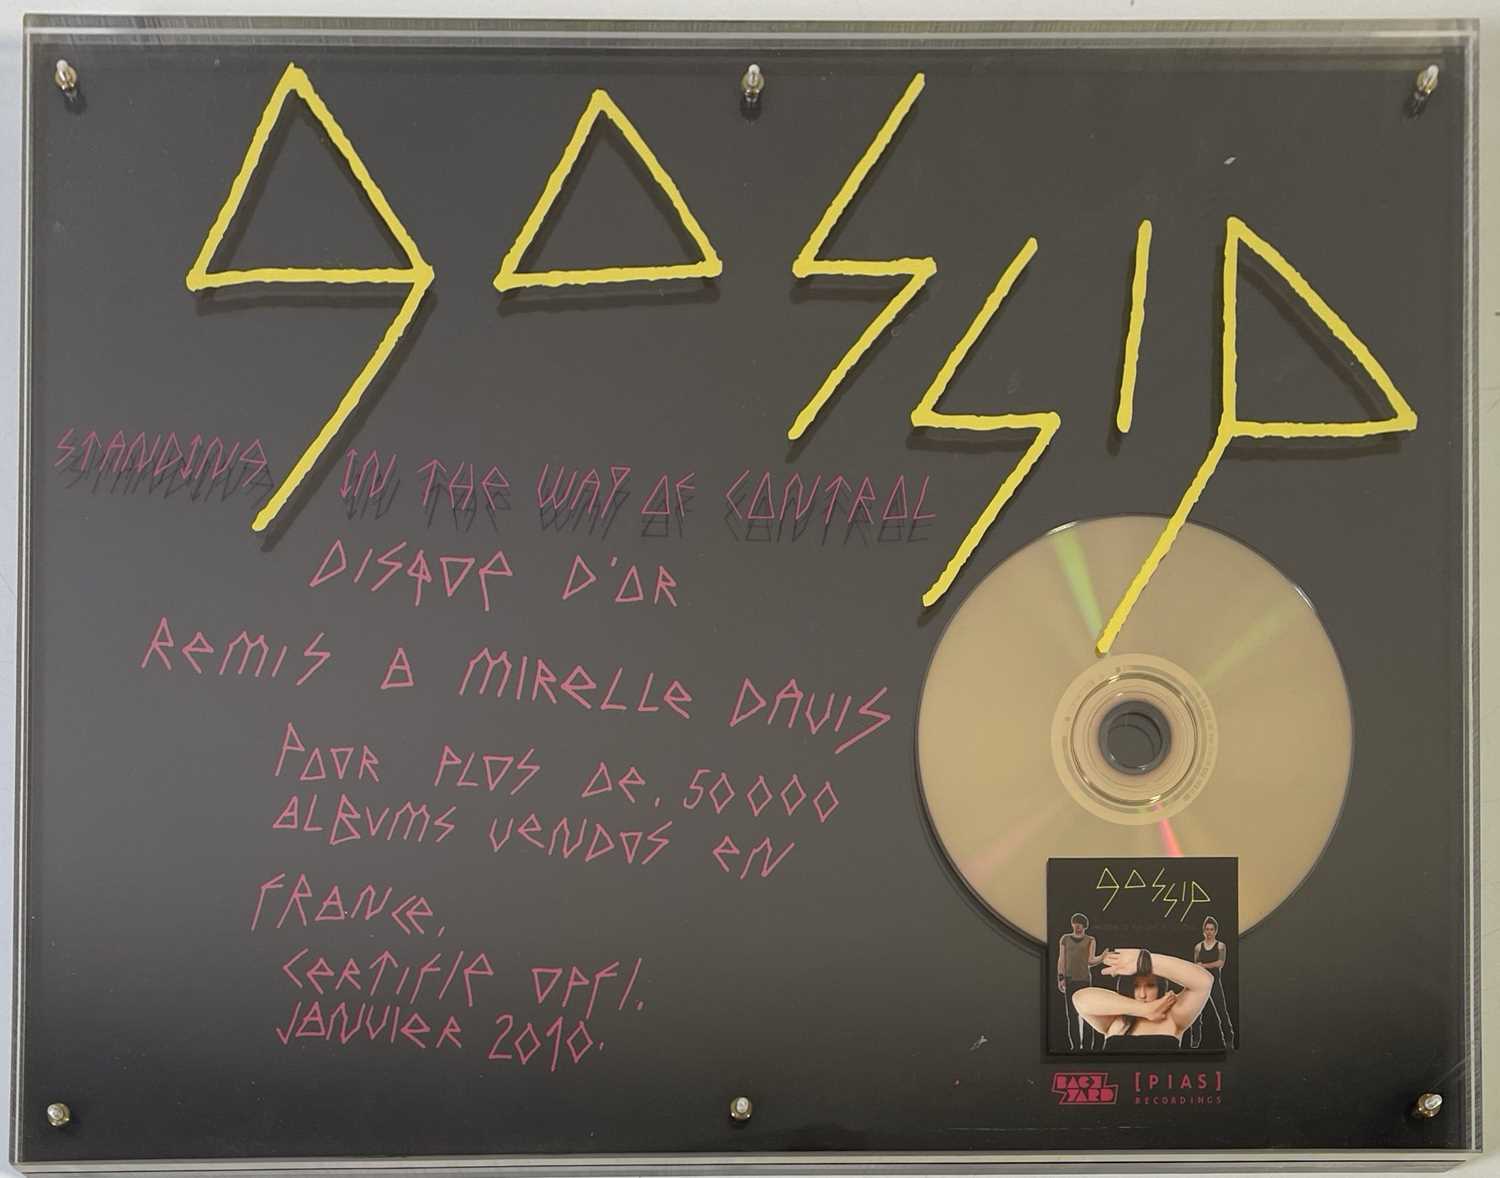 gossip
STANDING IN THE WAY OF CONTROL
DISQUE D'OR
REMIS A MIRELLE DAVIS
POUR PLUS DE. 50000
ALBUMS VENDUS EN
FRANCE,
CERTIFIE UPFI.
JANVIER 2010.
gossip
BACK YARD
[PIAS]
RECORDINGS